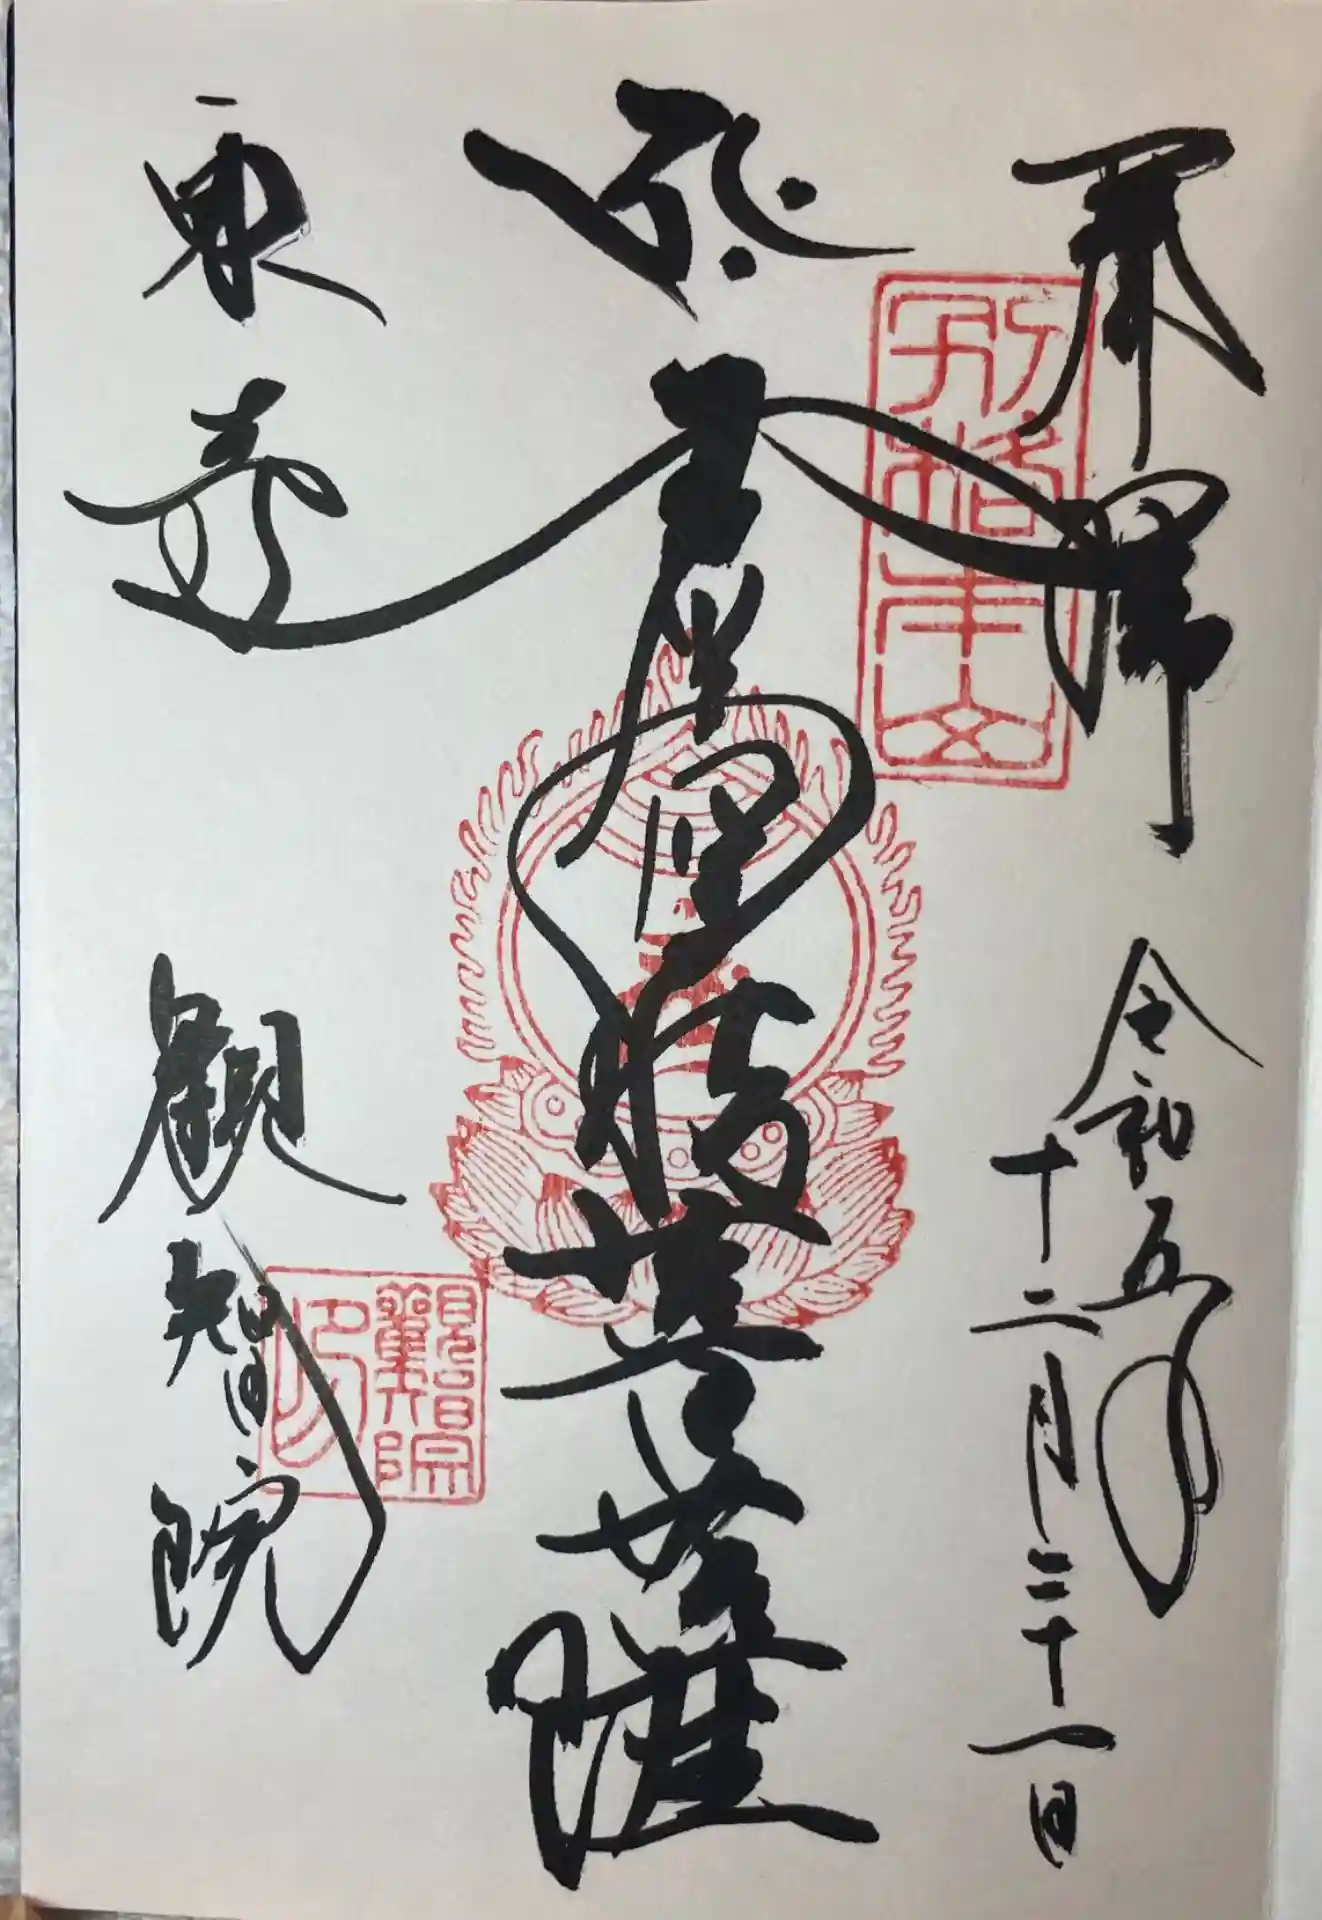 奉拝
令和五年
十二月二十一日
別格本山
五大虚空蔵菩薩
東寺
観智院
觀智院印